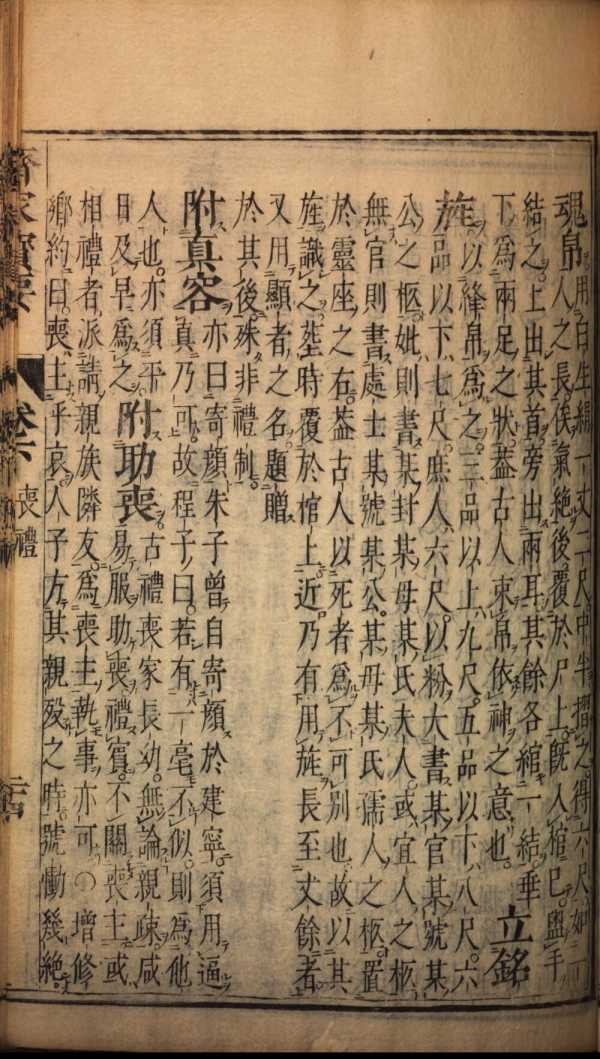 魂帛用白生絹一丈二尺中半摺之得六尺如一
人之長俟氣絶後覆於尸上既入棺已盥手
結之上出其首旁出兩耳其餘各綰一結垂
下爲兩足之狀葢古人束帛依神之意也 立銘
旌以絳帛爲之三品以上九尺五品以下八尺六
品以下七尺庶人六尺以粉大書某官某號某
公之柩妣則書某封某母某氏夫人或宜人之柩
無官則書處士某號某公某母某氏孺人之柩置
於靈座之右葢古人以死者爲不可别也故以其
旌識之塟時覆於棺上近乃有用旌長至丈餘者
又用顯者之名題贈
於其後殊非禮制
附真容亦曰寄顔朱子曾自寄顔於建寧須用逼
真乃可故程子曰若有一毫不似則爲他
人也亦須平
日及早爲之 附助喪古禮喪家長幼無論親疎咸
易服助喪禮賓不關喪主或
相禮者派請親族隣友爲喪主執事亦可○增修
鄉約曰喪主乎哀人子方其親殁之時號慟幾絶
齊家寶要 卷六 喪禮 二古